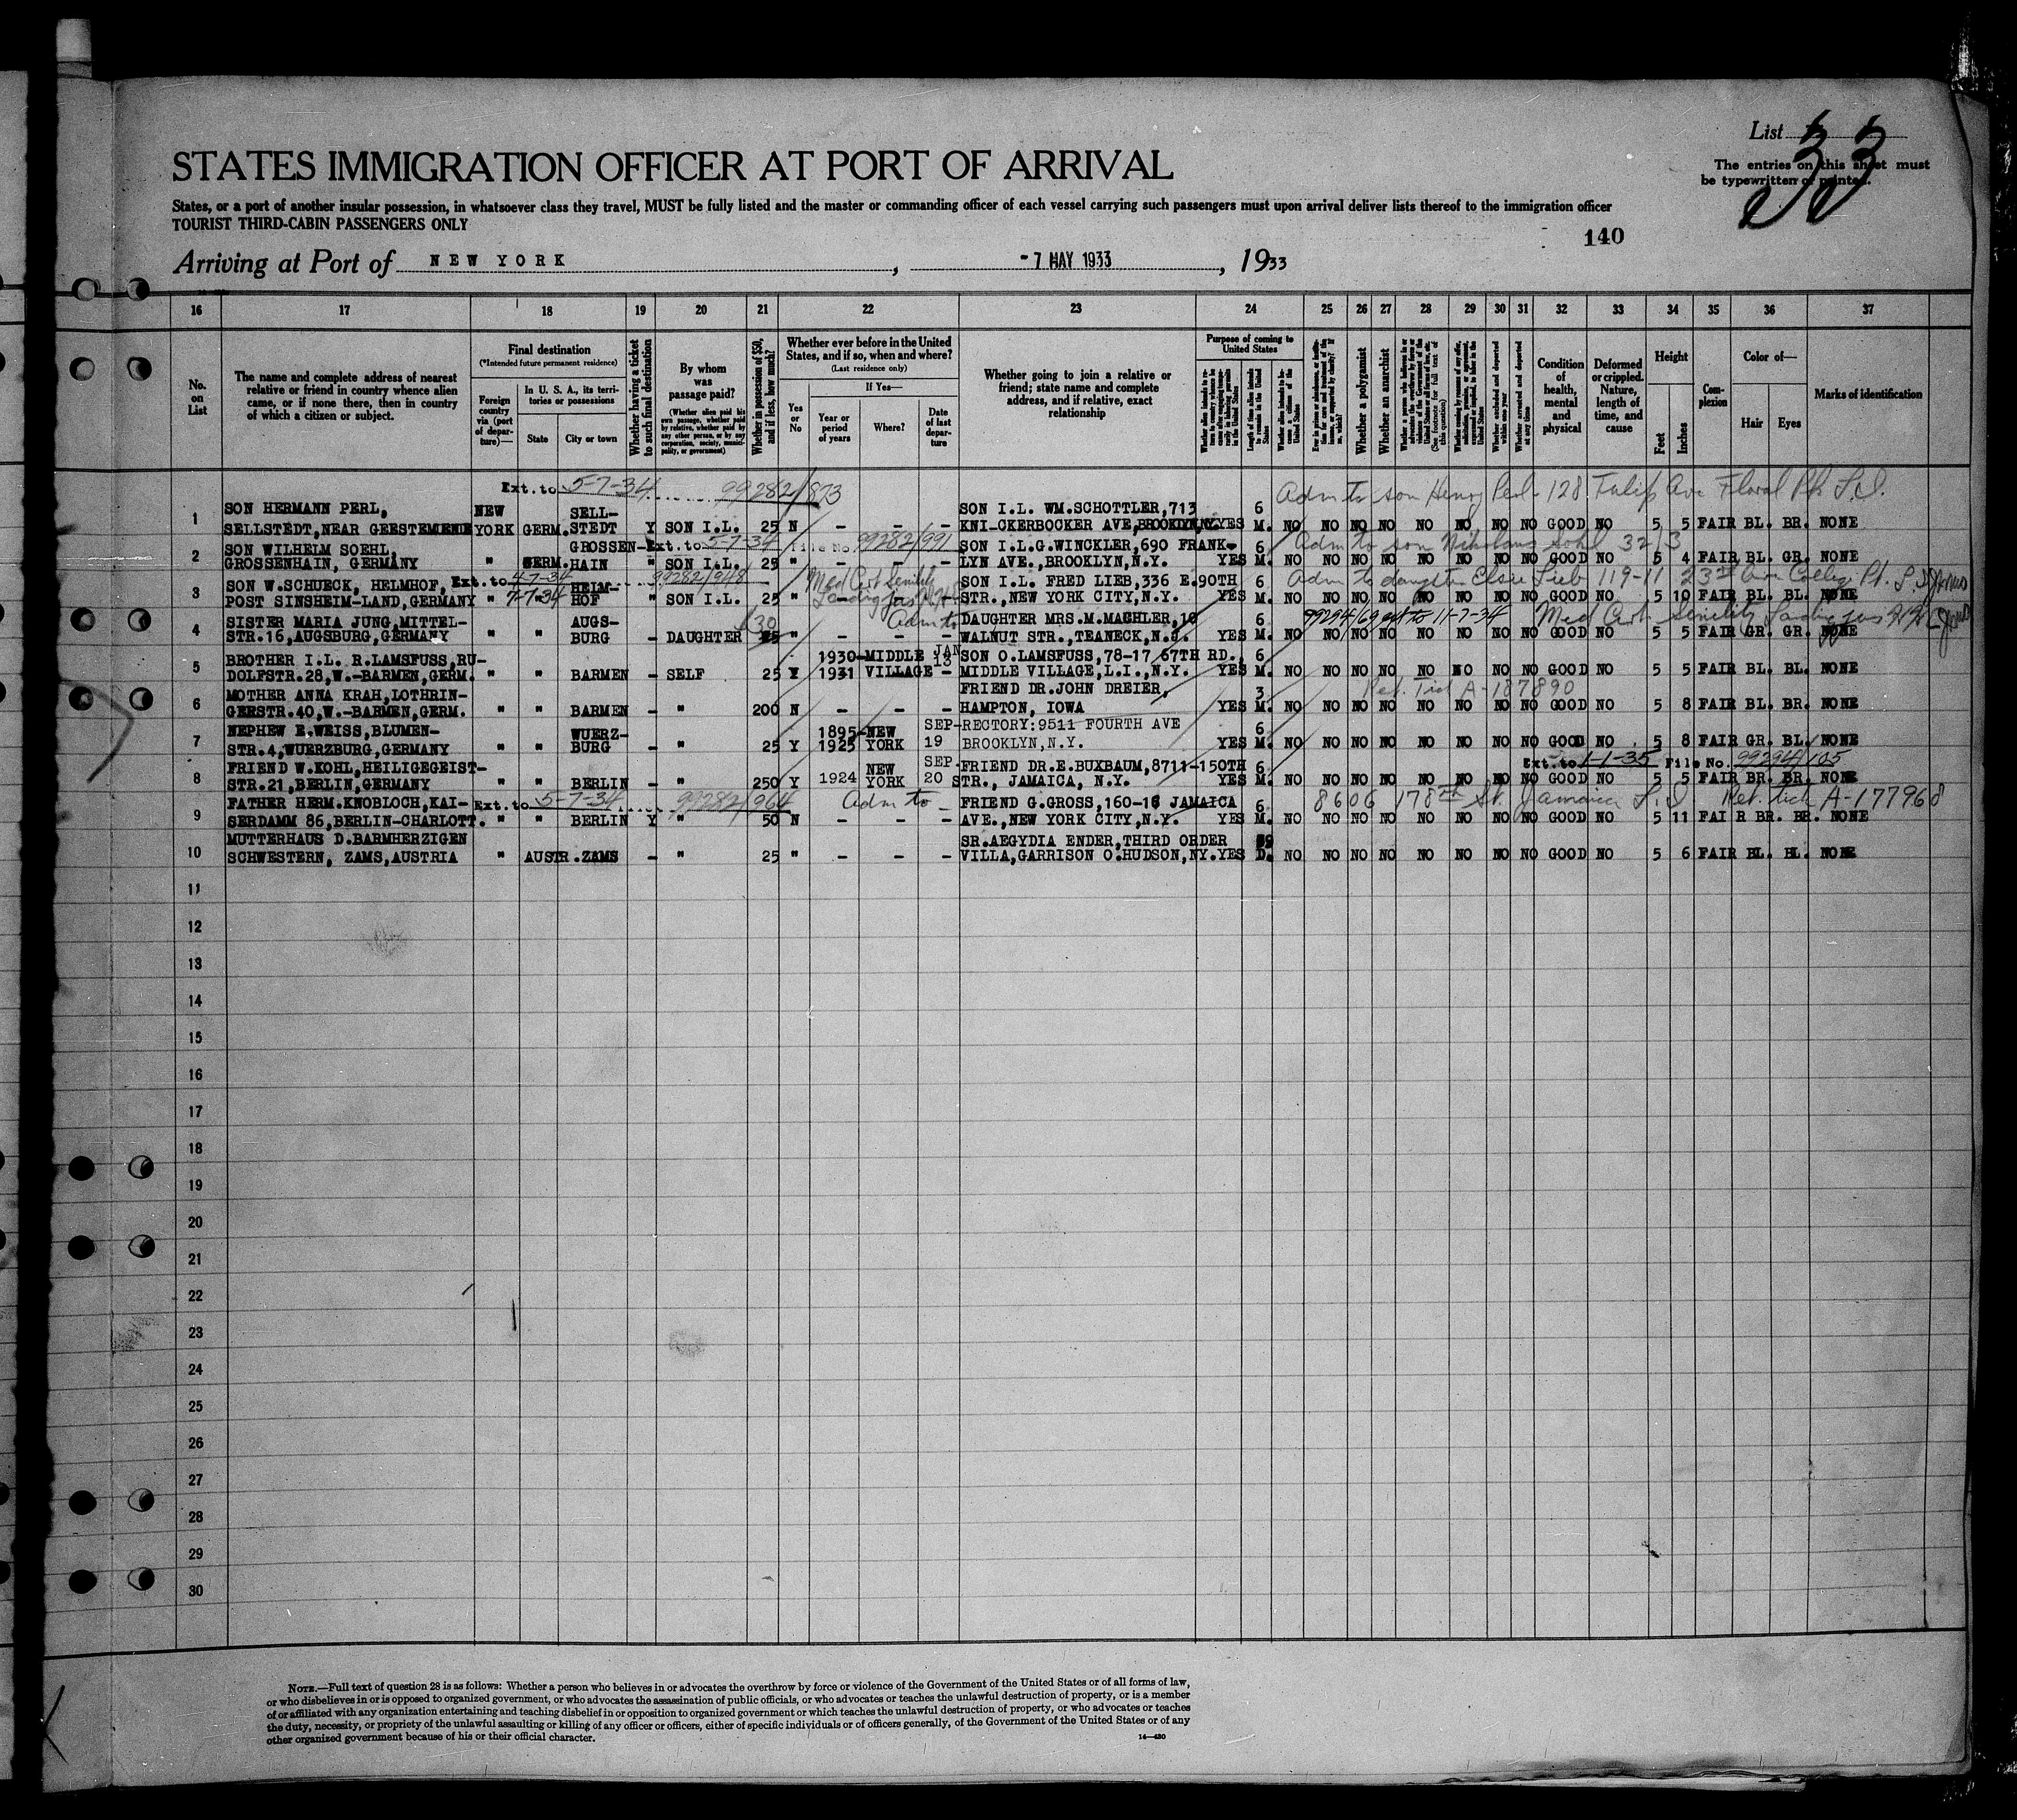 List 33
STATES IMMIGRATION OFFICER AT PORT OF ARRIVAL
The entries on this sheet must
be typewritten or printed.
States, or a port of another insular possession, in whatsoever class they travel, MUST be fully listed and the master or commanding officer of each vessel carrying such passengers must upon arrival deliver lists thereof to the immigration officer
TOURIST THIRD-CABIN PASSENGERS ONLY
140
Arriving at Port of NEW YORK, -7 MAY 1933, 1933
16 17 18 19 20 21 22 23 24 25 26 27 28 29 30 31 32 33 34 35 36 37
No. on List
The name and complete address of nearest relative or friend in country whence alien came, or if none there, then in country of which a citizen or subject.
Final destination
(*Intended future permanent residence)
Foreign country via (port of departure)—
In U. S. A., its territories or possessions
State
City or town
Whether having a ticket to such final destination
By whom was passage paid?
(Whether alien paid his own passage, whether paid by relative, whether paid by any other person, or by any corporation, society, municipality, or government)
Whether in possession of $50, and if less, how much?
Whether ever before in the United States, and if so, when and where?
(Last residence only)
Yes or No
If Yes—
Year or period of years
Where?
Date of last departure
Whether going to join a relative or friend; state name and complete address, and if relative, exact relationship
Purpose of coming to United States
Length of time alien intends to remain in the United States
Whether a polygamist
Whether an anarchist
(See footnote for full text of this question)
Whether excluded and deported within one year
Whether arrested and deported at any time
Condition of health, mental and physical
Deformed or crippled. Nature, length of time, and cause
Height
Feet
Inches
Complexion
Color of—
Hair
Eyes
Marks of identification
Ext. to 5-7-34 99282/873 Adm to son Henry Perl 128 Tulip Ave Floral Pk L.I.
1 SON HERMANN PERL, NEW SELL- SON I.L. WM.SCHOTTLER,713 6
SELLSTEDT,NEAR GEESTEMUENDE YORK GERM. STEDT Y SON I.L. 25 N - - - KNI-CKERBOCKER AVE,BROOKLYN,N.Y. YES M. NO NO NO NO NO NO NO NO GOOD NO 5 5 FAIR BL. BR. NONE
2 SON WILHELM SOEHL, GROSSEN- Ext. to 5-7-34 File No. 99282/991 SON I.L.G.WINCKLER,690 FRANK- 6 Adm to son Nikolaus Sohl 3213
GROSSENHAIN, GERMANY " GERM. HAIN " SON I.L. 25 " - - - LYN AVE.,BROOKLYN,N.Y. YES M. NO NO NO NO NO NO NO NO GOOD NO 5 4 FAIR BL. GR. NONE
3 SON W.SCHUECK, HELMHOF, Ext. to 4-7-34 HELM- 99282/948 Med Cert Senility SON I.L. FRED LIEB,336 E.90TH 6 Adm to daughter Elsie Lieb 119-11 23rd Ave College Pt. L.I.
POST SINSHEIM-LAND,GERMANY " 7-7-34 HOF " SON I.L. 25 " - - - STR.,NEW YORK CITY,N.Y. YES M. NO NO NO NO NO NO NO NO GOOD NO 5 10 FAIR BL. BL. NONE
4 SISTER MARIA JUNG,MITTEL- AUGS- 30 Adm to DAUGHTER MRS.M.MACHLER,10 6 99294/69 ext to 11-7-34 Med Cert Senility
STR.16,AUGSBURG,GERMANY " " BURG - DAUGHTER 25 " - - - WALNUT STR.,TEANECK,N.J. YES M. NO NO NO NO NO NO NO NO GOOD NO 5 5 FAIR GR. GR. NONE
5 BROTHER I.L. R.LAMSFUSS,RU- 1930-MIDDLE JAN SON O.LAMSFUSS,78-17 67TH RD., 6
DOLFSTR.28,W.-BARMEN,GERM. " " BARMEN - SELF 25 Y 1931 VILLAGE 13 - MIDDLE VILLAGE,L.I.,N.Y. YES M. NO NO NO NO NO NO NO NO GOOD NO 5 5 FAIR BL. BL. NONE
6 MOTHER ANNA KRAH,LOTHRIN- FRIEND DR.JOHN DREIER, 3 Ret. Tick A-187890
GERSTR.40,W.-BARMEN,GERM. " " BARMEN - " 200 N - - - HAMPTON, IOWA YES M. NO NO NO NO NO NO NO NO GOOD NO 5 8 FAIR BL. BR. NONE
7 NEPHEW E.WEISS,BLUMEN- WUERZ- 1895-NEW SEP- RECTORY:9511 FOURTH AVE 6
STR.4,WUERZBURG,GERMANY " " BURG - " 25 Y 1925 YORK 19 BROOKLYN,N.Y. YES M. NO NO NO NO NO NO NO NO GOOD NO 5 8 FAIR GR. BL. NONE
8 FRIEND W.KOHL,HEILIGEGEIST- NEW SEP- FRIEND DR.E.BUXBAUM,8711-150TH 6 Ext. to 1-1-35 File No. 99294/105
STR.21,BERLIN,GERMANY " " BERLIN - " 250 Y 1924 YORK 20 STR., JAMAICA, N.Y. YES M. NO NO NO NO NO NO NO NO GOOD NO 5 5 FAIR BR. BR. NONE
9 FATHER HERM.KNOBLOCH,KAI- Ext. to 5-7-34 99282/964 Adm to FRIEND G.GROSS,160-16 JAMAICA 6 8606 178th St. Jamaica L.I. Ret. tick A-177968
SERDAMM 86,BERLIN-CHARLOTT. " " BERLIN Y " 50 N - - - AVE.,NEW YORK CITY,N.Y. YES M. NO NO NO NO NO NO NO NO GOOD NO 5 11 FAIR BR. BR. NONE
10 MUTTERHAUS D.BARMHERZIGEN SR.AEGYDIA ENDER,THIRD ORDER
SCHWESTERN, ZAMS,AUSTRIA " AUSTR. ZAMS - " 25 " - - - VILLA,GARRISON O.HUDSON,NY. YES D. NO NO NO NO NO NO NO NO GOOD NO 5 6 FAIR BL. BL. NONE
11
12
13
14
15
16
17
18
19
20
21
22
23
24
25
26
27
28
29
30
NOTE.—Full text of question 28 is as follows: Whether a person who believes in or advocates the overthrow by force or violence of the Government of the United States or of all forms of law,
or who disbelieves in or is opposed to organized government, or who advocates the assassination of public officials, or who advocates or teaches the unlawful destruction of property, or is a member
of or affiliated with any organization entertaining and teaching disbelief in or opposition to organized government or which teaches the unlawful destruction of property, or who advocates or teaches
the duty, necessity, or propriety of the unlawful assaulting or killing of any officer or officers, either of specific individuals or of officers generally, of the Government of the United States or of any
other organized government because of his or their official character.
14—430